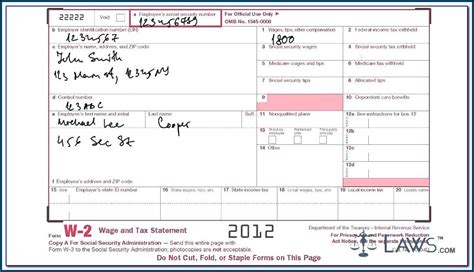 22222
Void
a Employee's social security number
123456789
For Official Use Only ▶
OMB No. 1545-0008
b Employer identification number (EIN)
1234567
1 Wages, tips, other compensation
1800
2 Federal income tax withheld
c Employer's name, address, and ZIP code
John Smith
123 Main St, 12345 NY
3 Social security wages
4 Social security tax withheld
5 Medicare wages and tips
6 Medicare tax withheld
7 Social security tips
8 Allocated tips
d Control number
123ABC
9
10 Dependent care benefits
e Employee's first name and initial
Last name
Suff.
Michael Lee
Cooper
11 Nonqualified plans
12a See instructions for box 12
456 Sec St
13
Statutory employee
Retirement plan
Third-party sick pay
12b
14 Other
12c
12d
f Employee's address and ZIP code
15 State
Employer's state ID number
16 State wages, tips, etc.
17 State income tax
18 Local wages, tips, etc.
19 Local income tax
20 Locality name
Form W-2 Wage and Tax Statement
2012
Department of the Treasury—Internal Revenue Service
For Privacy Act and Paperwork Reduction
Act Notice, see the separate instructions.
Copy A For Social Security Administration — Send this entire page with
Form W-3 to the Social Security Administration; photocopies are not acceptable.
Do Not Cut, Fold, or Staple Forms on This Page
LAWS.com